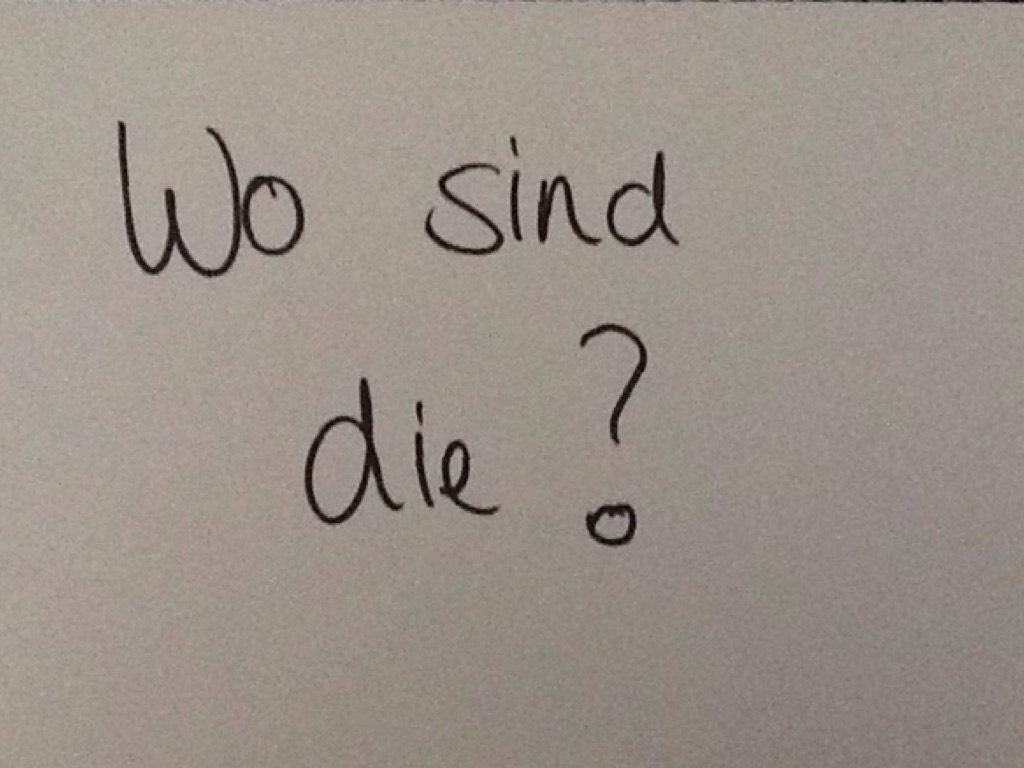 Wo sind
die?